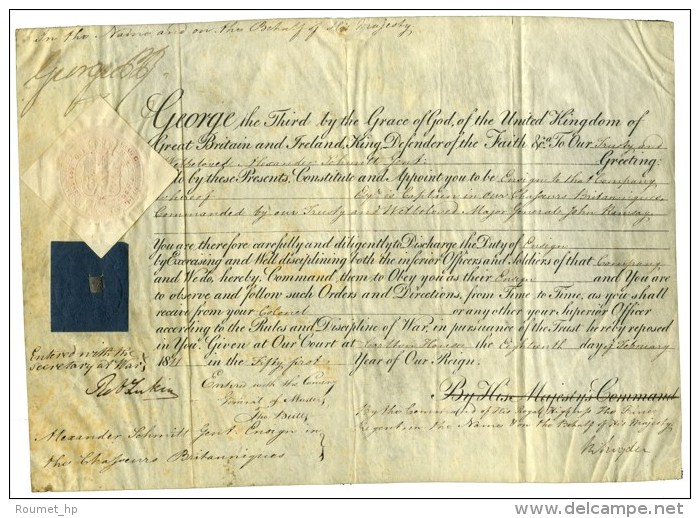 In the Name and on the Behalf of His Majesty,
George PR
George the Third by the Grace of God, of the United Kingdom of
Great Britain and Ireland, King, Defender of the Faith &ca To Our Trusty and
Wellbeloved Alexander Schmitt Gent. Greeting:
We do by these Presents, Constitute and Appoint you to be Ensign to that Company
whereof Esqr. is Captain in our Chasseurs Britanniques
Commanded by our Trusty and Wellbeloved Major General John Ramsay
You are therefore carefully and diligently to Discharge the Duty of Ensign
by Exercising and Well disciplining both the inferior Officers and Soldiers of that Company
and We do hereby Command them to Obey you as their Ensign and You are
to observe and follow such Orders and Directions, from Time to Time, as you shall
receive from your Colonel or any other your Superior Officer
according to the Rules and Discipline of War, in pursuance of the Trust hereby reposed
in You. Given at Our Court at Carlton House the Eighteenth day of February
1811 in the Fifty first Year of Our Reign.
Entered with the
Secretary at War
Entered with the Commy
General of Musters
By His Majesty's Command
By the Command of His Royal Highness The Prince
Regent in the Name & on the Behalf of His Majesty
Alexander Schmitt Gent. Ensign in
the Chasseurs Britanniques
R Ryder
© Roumet_hp
www.delcampe.net